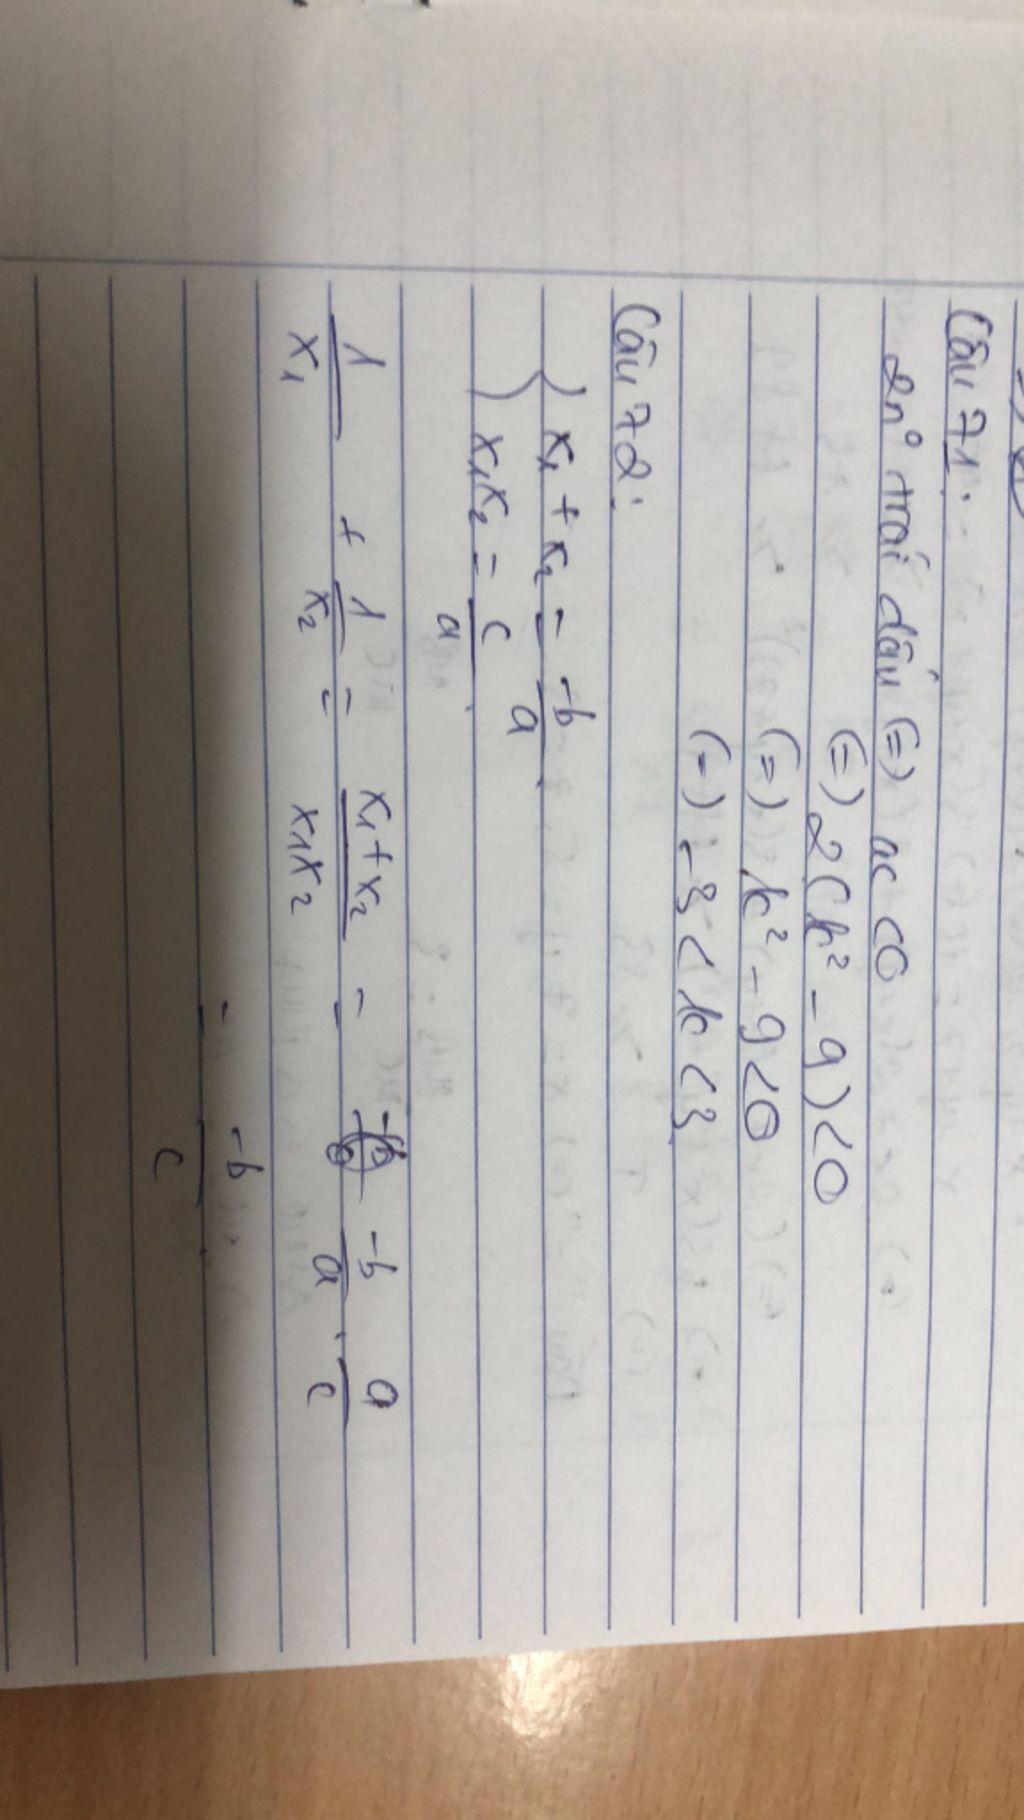 Câu 71:
2n° trái dấu (=) ac < 0
(=) 2(k² - 9) < 0
(=) k² - 9 < 0
(=) -3 < k < 3
Câu 72:
{ x₁ + x₂ = -b/a
x₁x₂ = c/a
1/x₁ + 1/x₂ = (x₁+x₂)/(x₁x₂) = -b/a . a/c
= -b/c